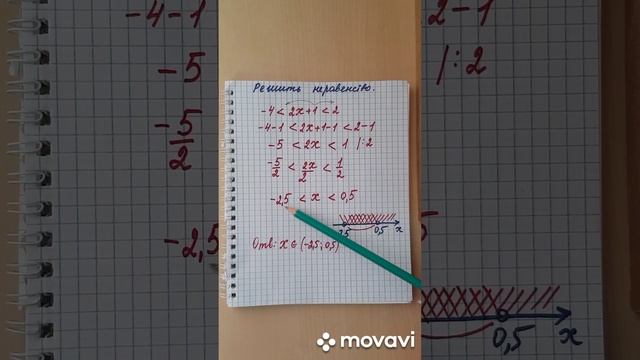 Решить неравенство.
-4 < 2x+1 < 2
-4-1 < 2x+1-1 < 2-1
-5 < 2x < 1 |:2
-5/2 < 2x/2 < 1/2
-2,5 < x < 0,5
-2,5 0,5 x
Отв: x ∈ (-2,5; 0,5)
-4-1
-5
-5/2
-2,5
2-1
|:2
0,5 x
movavi